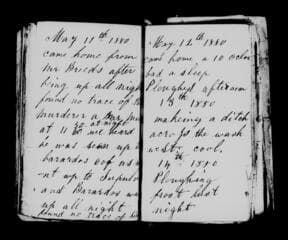 May 11th 1880
came home from
Mr Brieds after
being up all nigh
found no trace of the
murderer
at 11 at night we heard
he was seen up
barardos 6 of us
-nt up to
and Barardos
up all night
found no trace of
May 12th 1880
came home a 10 oclo
had a sleep
Ploughed afternoon
13th 1880
makeing a ditch
across the wash
west. cool.
14th 1880
Ploughing
frost last
night